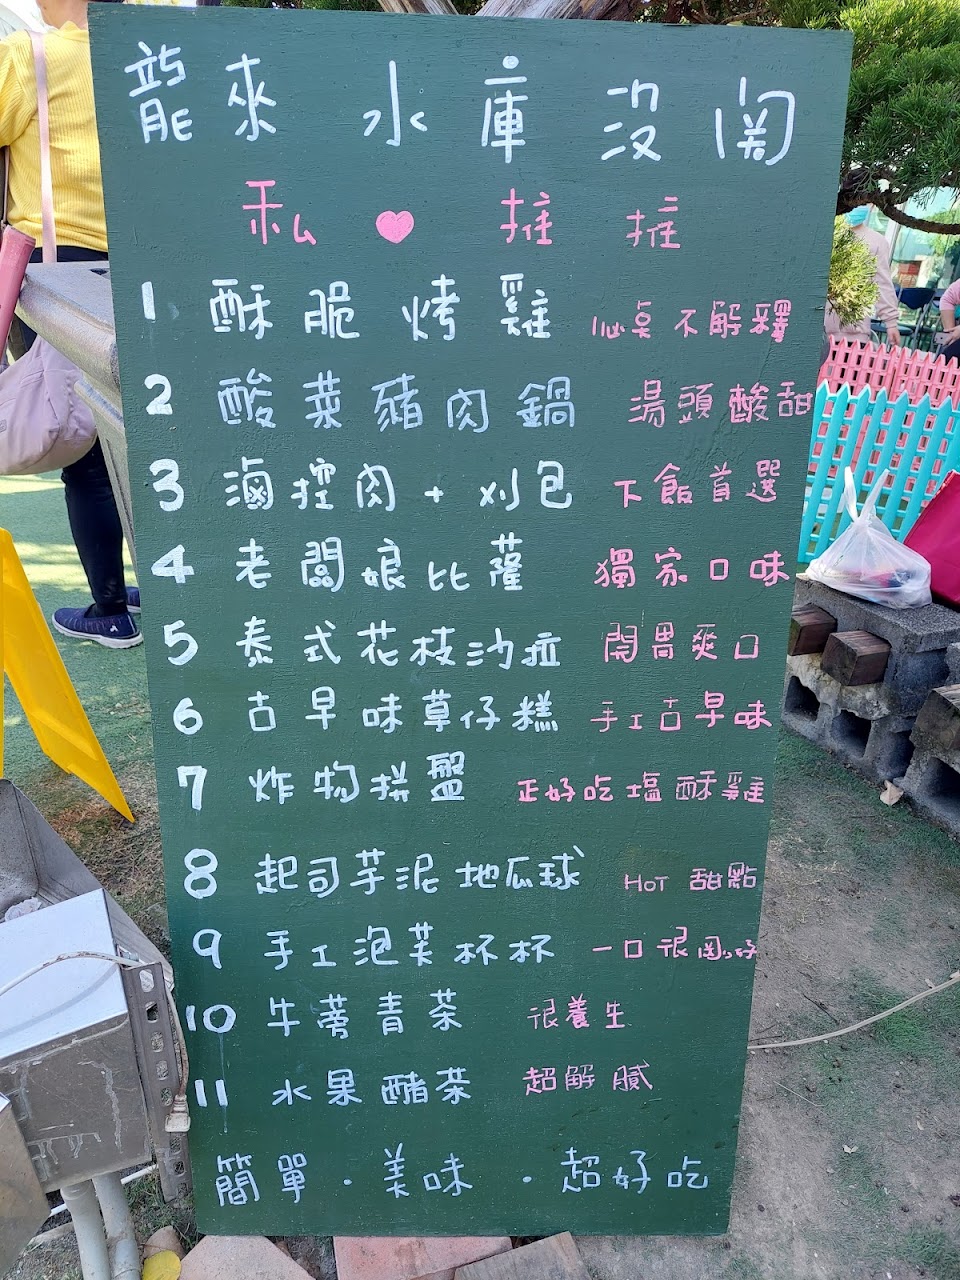 龍來水庫沒關
私♥推推
1 酥脆烤雞 心桌不解釋
2 酸菜豬肉鍋 湯頭酸甜
3 滷控肉+刈包 下飯首選
4 老闆娘比薩 獨家口味
5 泰式花枝沙拉 開胃爽口
6 古早味草仔糕 手工古早味
7 炸物拼盤 正好吃塩酥雞
8 起司芋泥地瓜球 HOT 甜點
9 手工泡芙杯杯 一口很剛好
10 牛蒡青茶 很養生
11 水果醋茶 超解膩
簡單·美味·超好吃